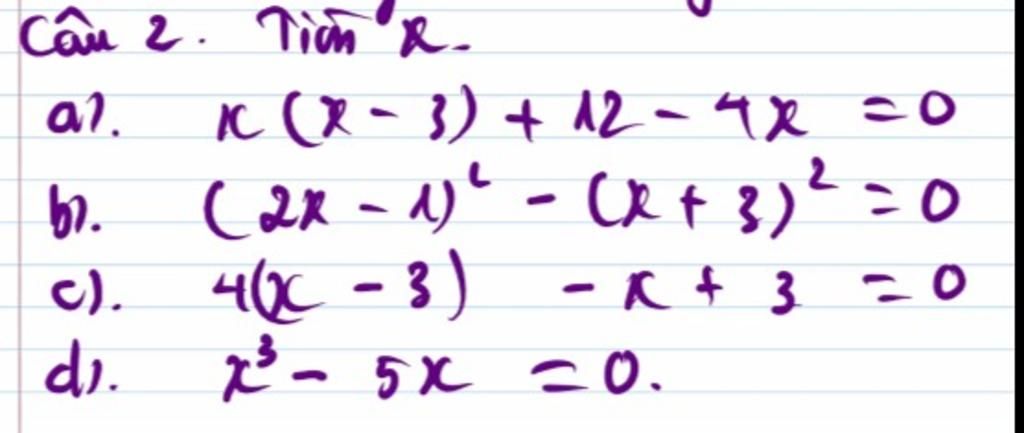 Câu 2. Tìm x.
a). x(x - 3) + 12 - 4x = 0
b). (2x - 1)² - (x + 3)² = 0
c). 4(x - 3) - x + 3 = 0
d). x³ - 5x = 0.